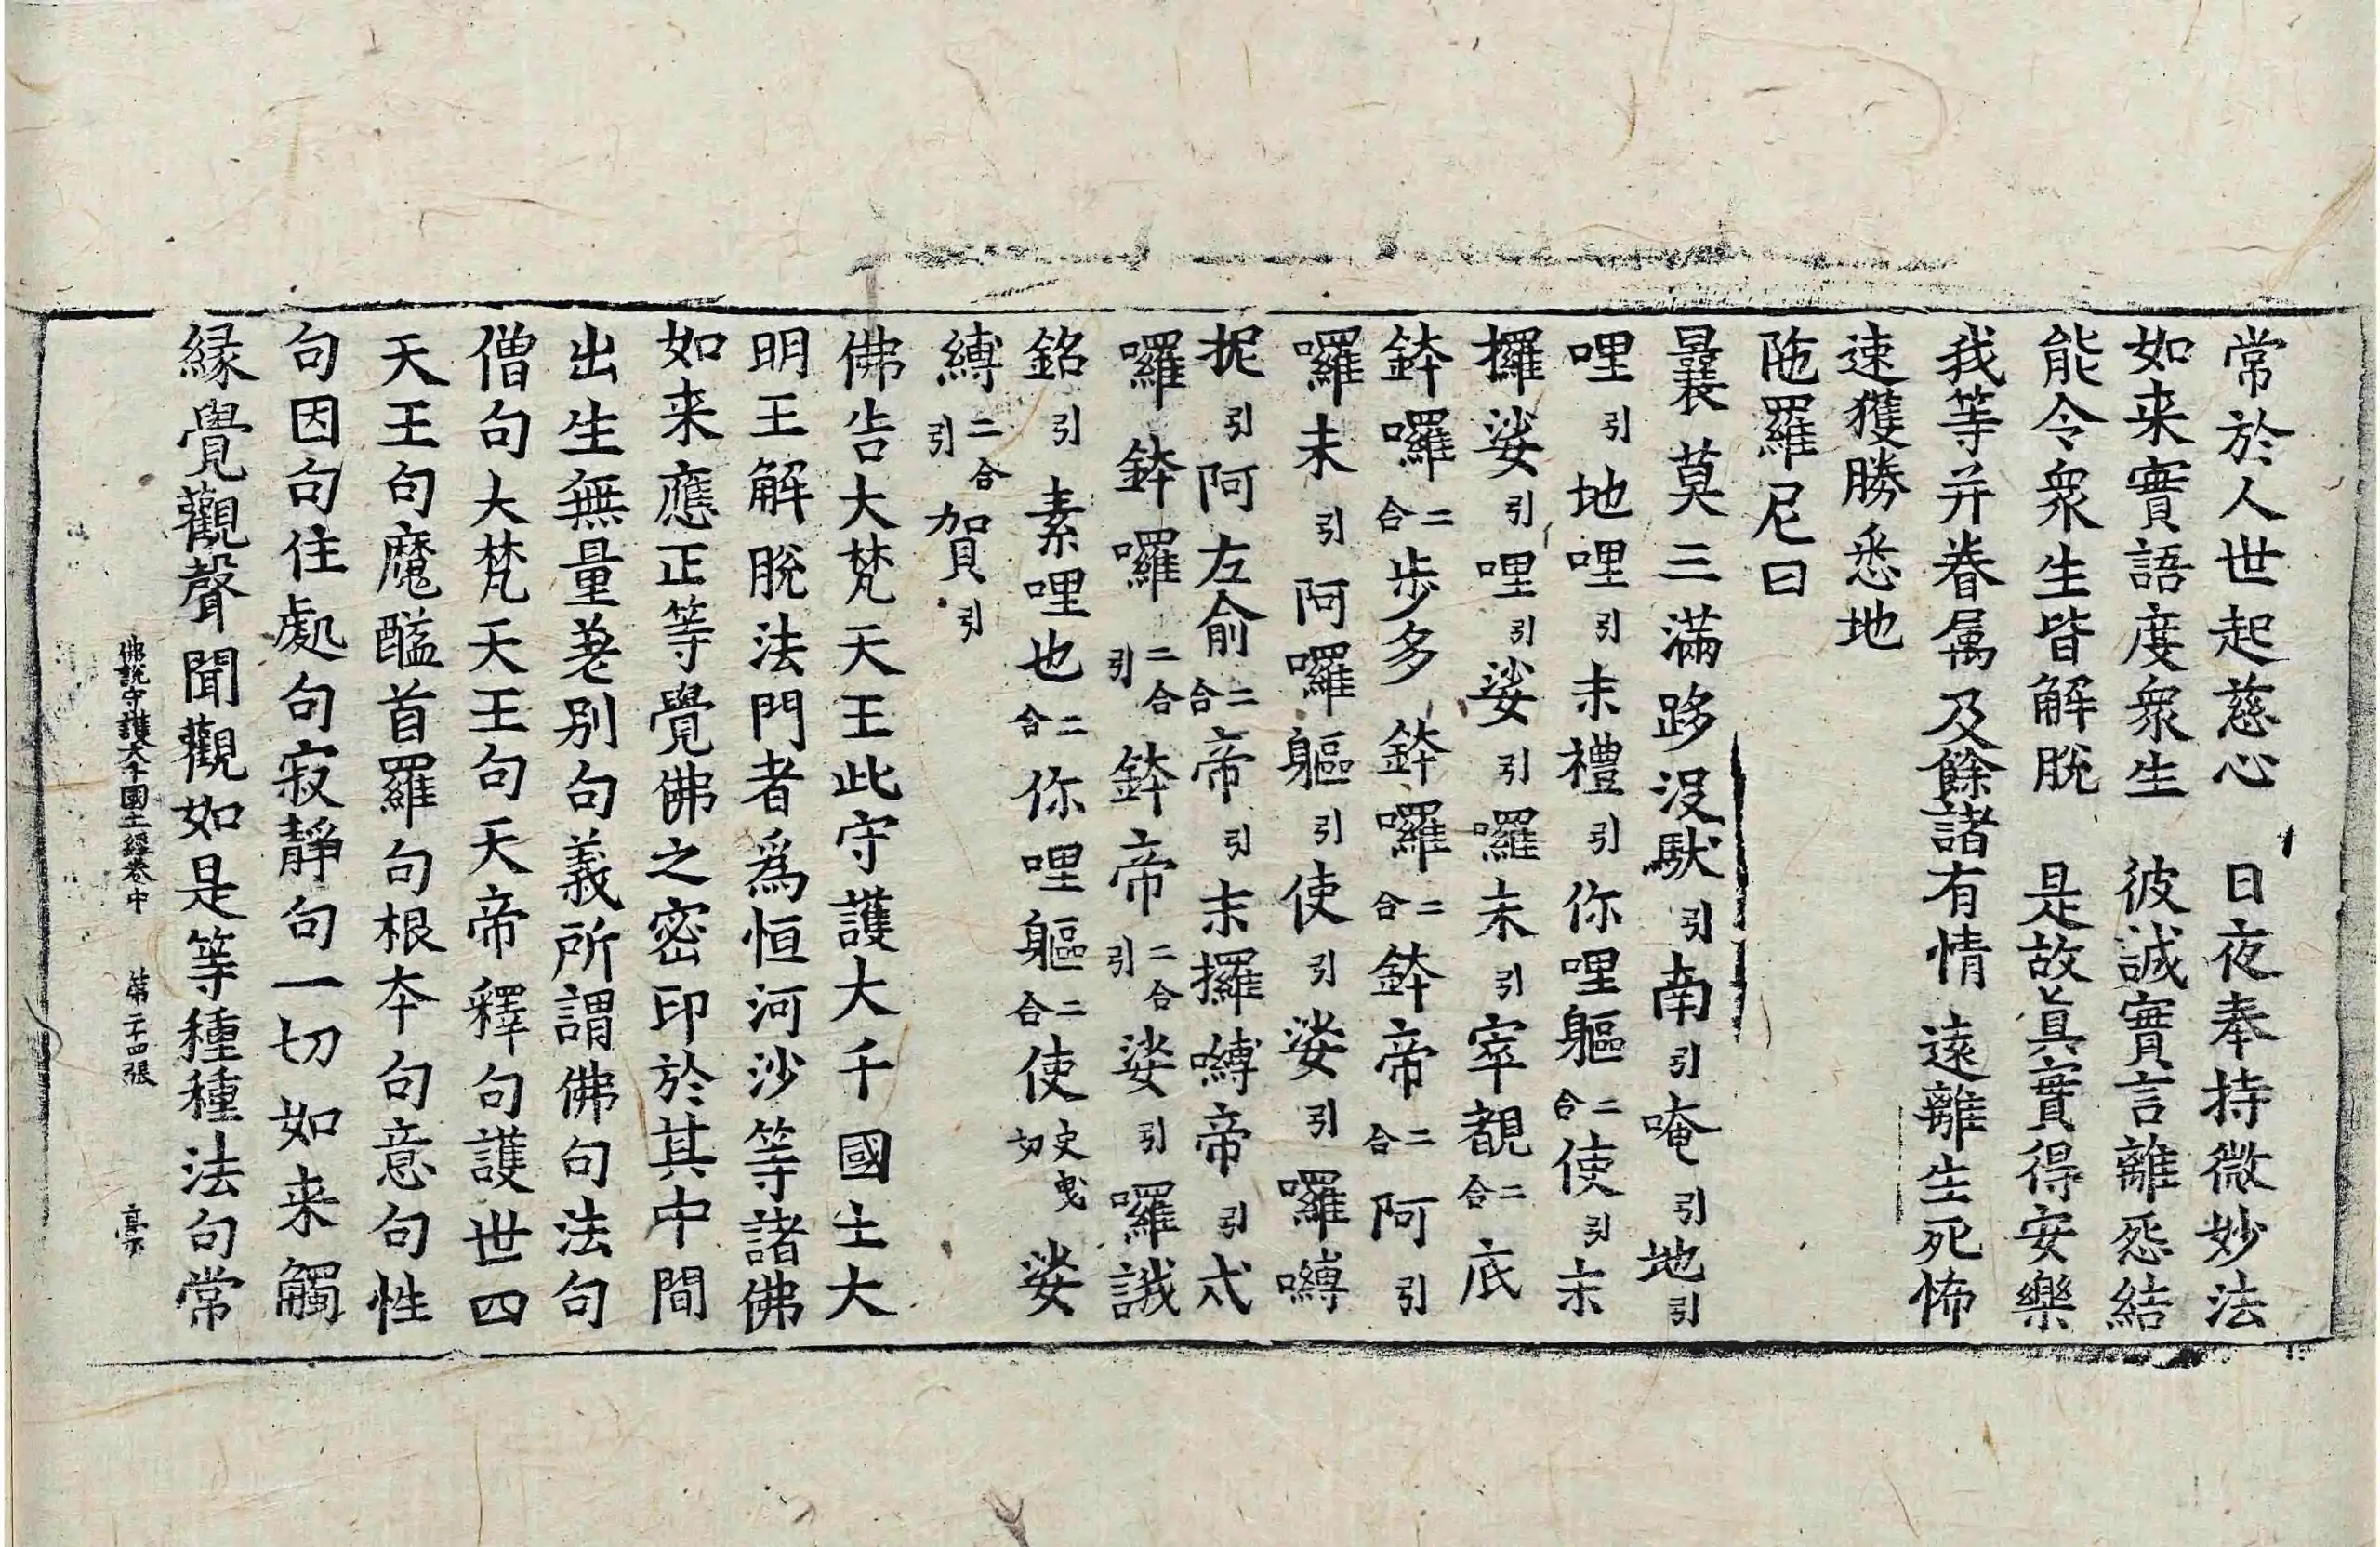 常於人世起慈心　日夜奉持微妙法
如来實語度衆生　彼誠實言離惌結
能令衆生皆解脫　是故眞實得安樂
我等并眷属及餘諸有情　遠離生死怖
速獲勝悉地
陁羅尼曰
曩莫三滿跢沒馱引南引唵引地引
哩引地哩引末禮引你哩軀二合使引末
攞娑引哩引娑引羅末引窣覩二合底
鉢囉二合步多鉢囉二合鉢帝二合阿引
囉末引阿囉軀引使引娑引囉嚩
抳引阿左俞二合帝引末攞嚩帝引式
囉鉢囉二合引鉢帝二合引娑引囉誐
銘引素哩也二合你哩軀二合使史曳切娑
縛二合引賀引
佛告大梵天王此守護大千國土大
明王解脫法門者爲恒河沙等諸佛
如来應正等覺佛之密印於其中間
出生無量差别句義所謂佛句法句
僧句大梵天王句天帝釋句護世四
天王句魔醯首羅句根本句意句性
句因句住處句寂靜句一切如来觸
緣覺觀聲聞觀如是等種種法句常
佛說守護大千國土經卷中　第二十四張